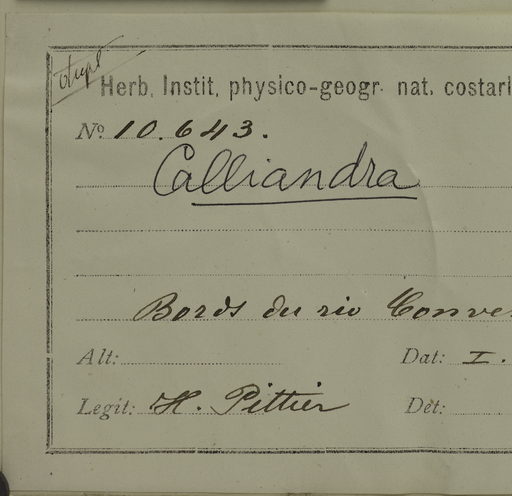 dupl.
Herb. Instit. physico-geogr. nat. costari
No. 10.643.
Calliandra
Bords du rio Conve
Alt: Dat: I.
Legit: H. Pittier Dét: